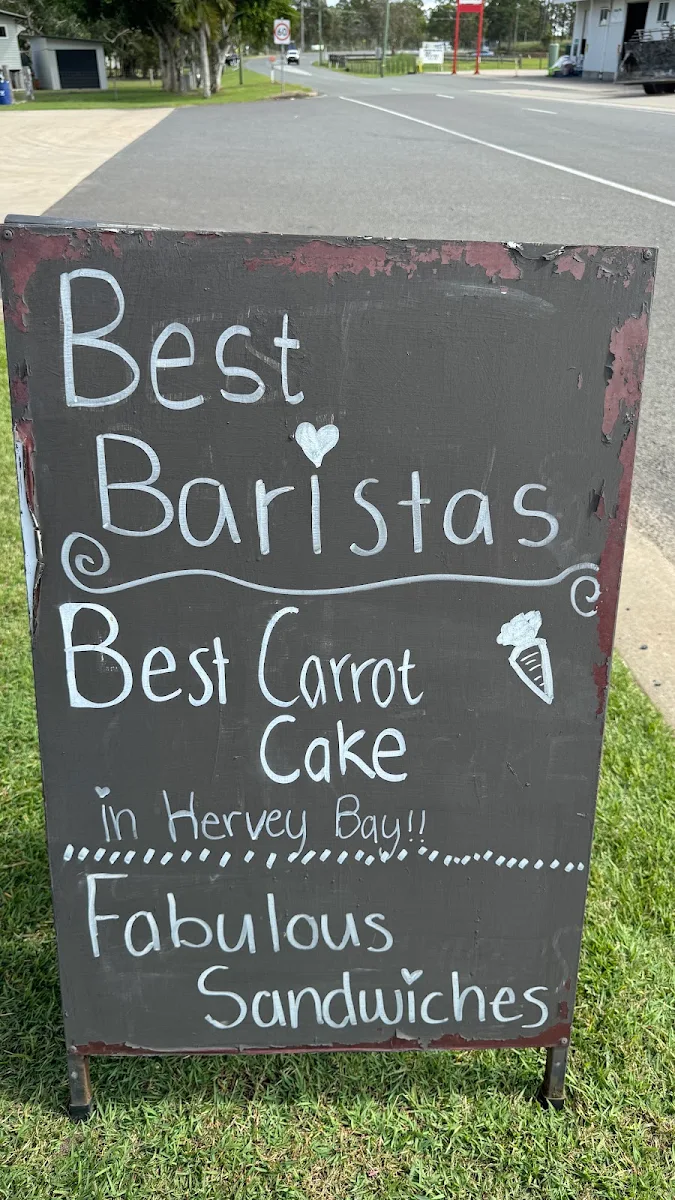 Best
Baristas
Best Carrot
Cake
in Hervey Bay!!
Fabulous
Sandwiches